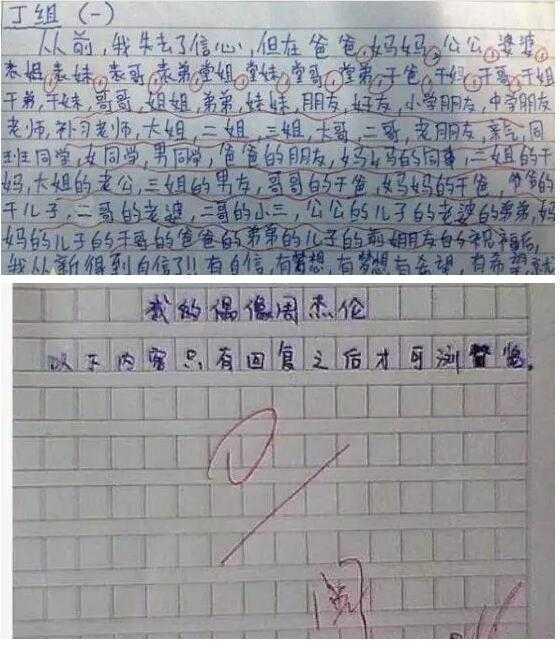 丁组 (一)
从前,我失去了信心,但在爸爸,妈妈,公公,婆婆,
表姐,表妹,表哥,表弟,堂姐,堂妹,堂哥,堂弟,干爸,干妈,干哥,干姐
干弟,干妹,哥哥,姐姐,弟弟,妹妹,朋友,好友,小学朋友,中学朋友
老师,补习老师,大姐,二姐,三姐,大哥,二哥,老朋友,亲戚,同
班同学,女同学,男同学,爸爸的朋友,妈妈的同事,三姐的干
妈,大姐的老公,三姐的男友,哥哥的干爸,妈妈的干爸,爷爷的
干儿子,二哥的老婆,二哥的小三,公公的儿子的老婆的弟弟,妈
妈的儿子的干哥的爸爸的弟弟的儿子的前女朋友的祝福后,
我从新得到自信了!!有自信,有梦想,有梦想有希望,有希望就
我的偶像周杰伦
以下内容只有回复之后才可浏览。
阅